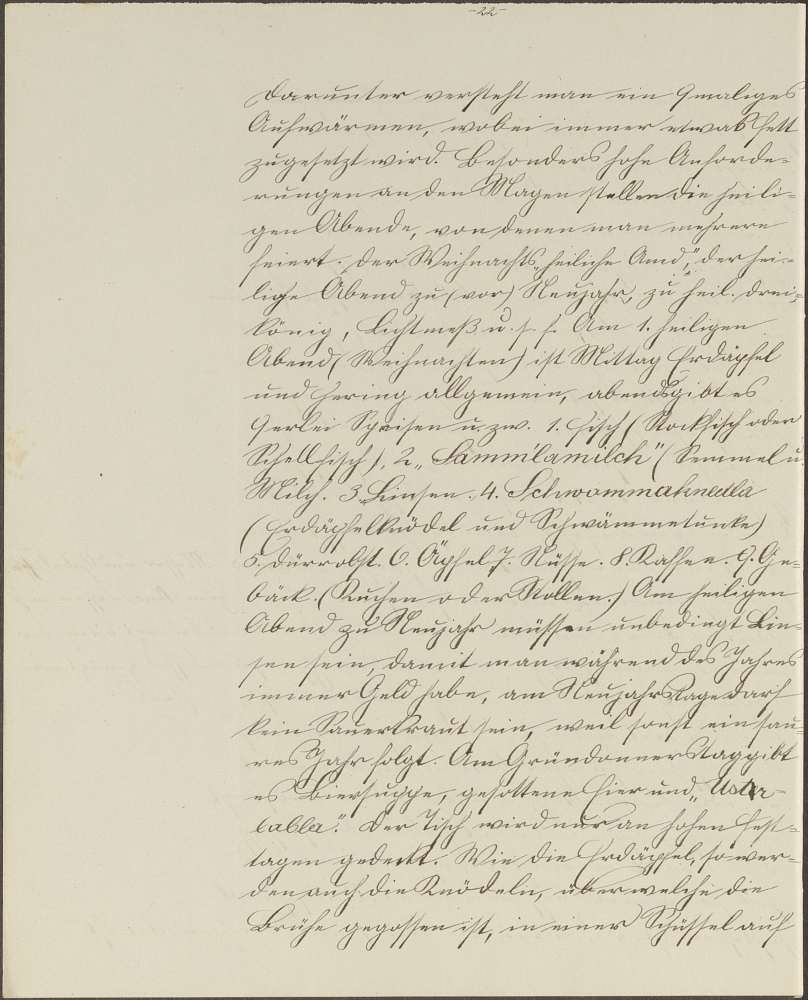 -22-
Darunter versteht man ein 9maliges
Aufwärmen, wobei immer etwas Fett
zugesetzt wird. Besonders hohe Anforde-
rungen an den Magen stellen die heili-
gen Abende, von denen man mehrere
feiert. Der Weihnachts „heiliche Amd“, der hei-
lige Abend zu (vor) Neujahr, zu heil. drei-
könig, Lichtmeß u. s. f. Am 1. heiligen
Abend (Weihnachten) ist Mittag Erdäpfel
und Hering allgemein, abends gibt es
9erlei Speisen u. zw. 1. Fisch (Stockfisch oder
Schellfisch), 2. „Sammlamilch“ (Semmel u.
Milch. 3. Linsen. 4. Schwommaknedla
(Erdäpfelknödel und Schwämmetunke)
5. Dürrobst. 6. Äpfel 7. Nüsse. 8. Kaffee. 9. Ge-
bäck. (Kuchen oder Stollen.) Am heiligen
Abend zu Neujahr müssen unbedingt Lin-
sen sein, damit man während des Jahres
immer Geld habe, am Neujahrstage darf
kein Sauerkraut sein, weil sonst ein sau-
res Jahr folgt. Am Gründonnerstag gibt
es Biersuppe, gesottene Eier und „Uster-
labla“. Der Tisch wird nur an hohen Fest-
tagen gedeckt. Wie die Erdäpfel, so wer-
den auch die Knödeln, über welche die
Brühe gegossen ist, in einer Schüssel auf